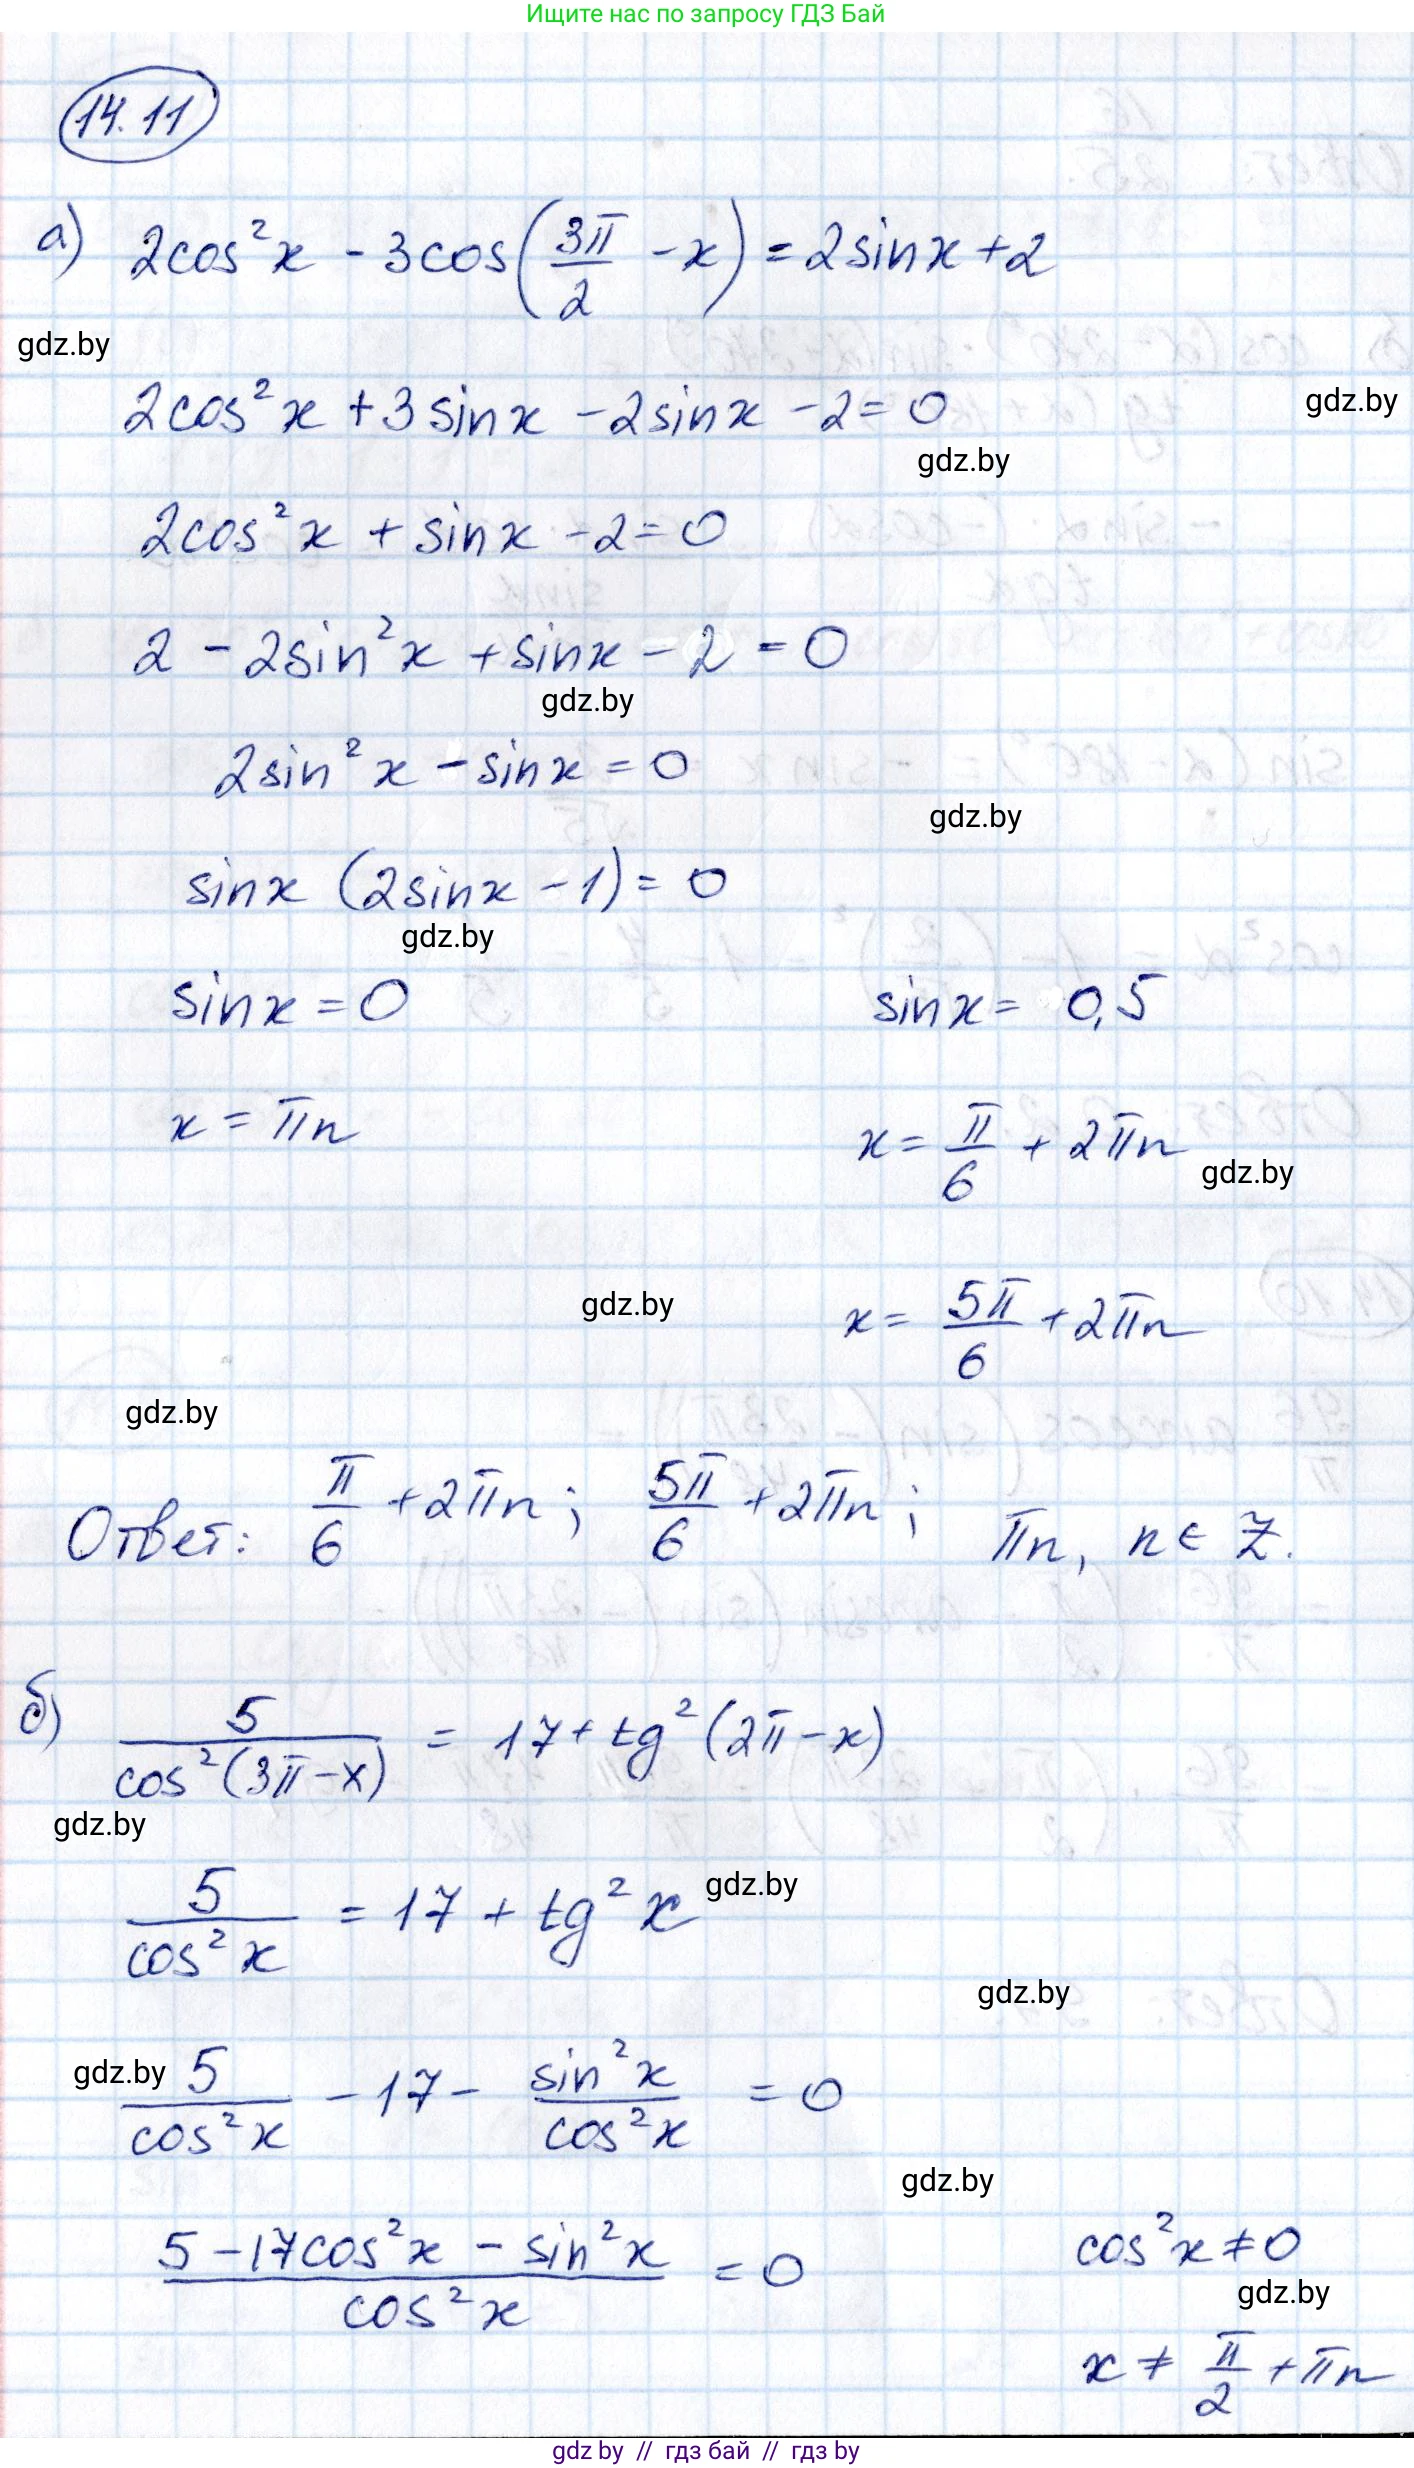 Ищите нас по запросу ГДЗ Бай
14.11
а) 2cos²x - 3cos(3π/2 - x) = 2sinx + 2
gdz.by
2cos²x + 3sinx - 2sinx - 2 = 0
gdz.by
gdz.by
2cos²x + sinx - 2 = 0
2 - 2sin²x + sinx - 2 = 0
gdz.by
2sin²x - sinx = 0
gdz.by
sinx (2sinx - 1) = 0
gdz.by
sinx = 0 sinx = 0,5
x = πn x = π/6 + 2πn
gdz.by
gdz.by
x = 5π/6 + 2πn
gdz.by
Ответ: π/6 + 2πn; 5π/6 + 2πn; πn, n ∈ Z.
б) 5/cos²(3π - x) = 17 + tg²(2π - x)
gdz.by
5/cos²x = 17 + tg²x
gdz.by
gdz.by
gdz.by
5/cos²x - 17 - sin²x/cos²x = 0
gdz.by
(5 - 17cos²x - sin²x)/cos²x = 0 cos²x ≠ 0
gdz.by
x ≠ π/2 + πn
gdz.by // гдз бай // гдз by